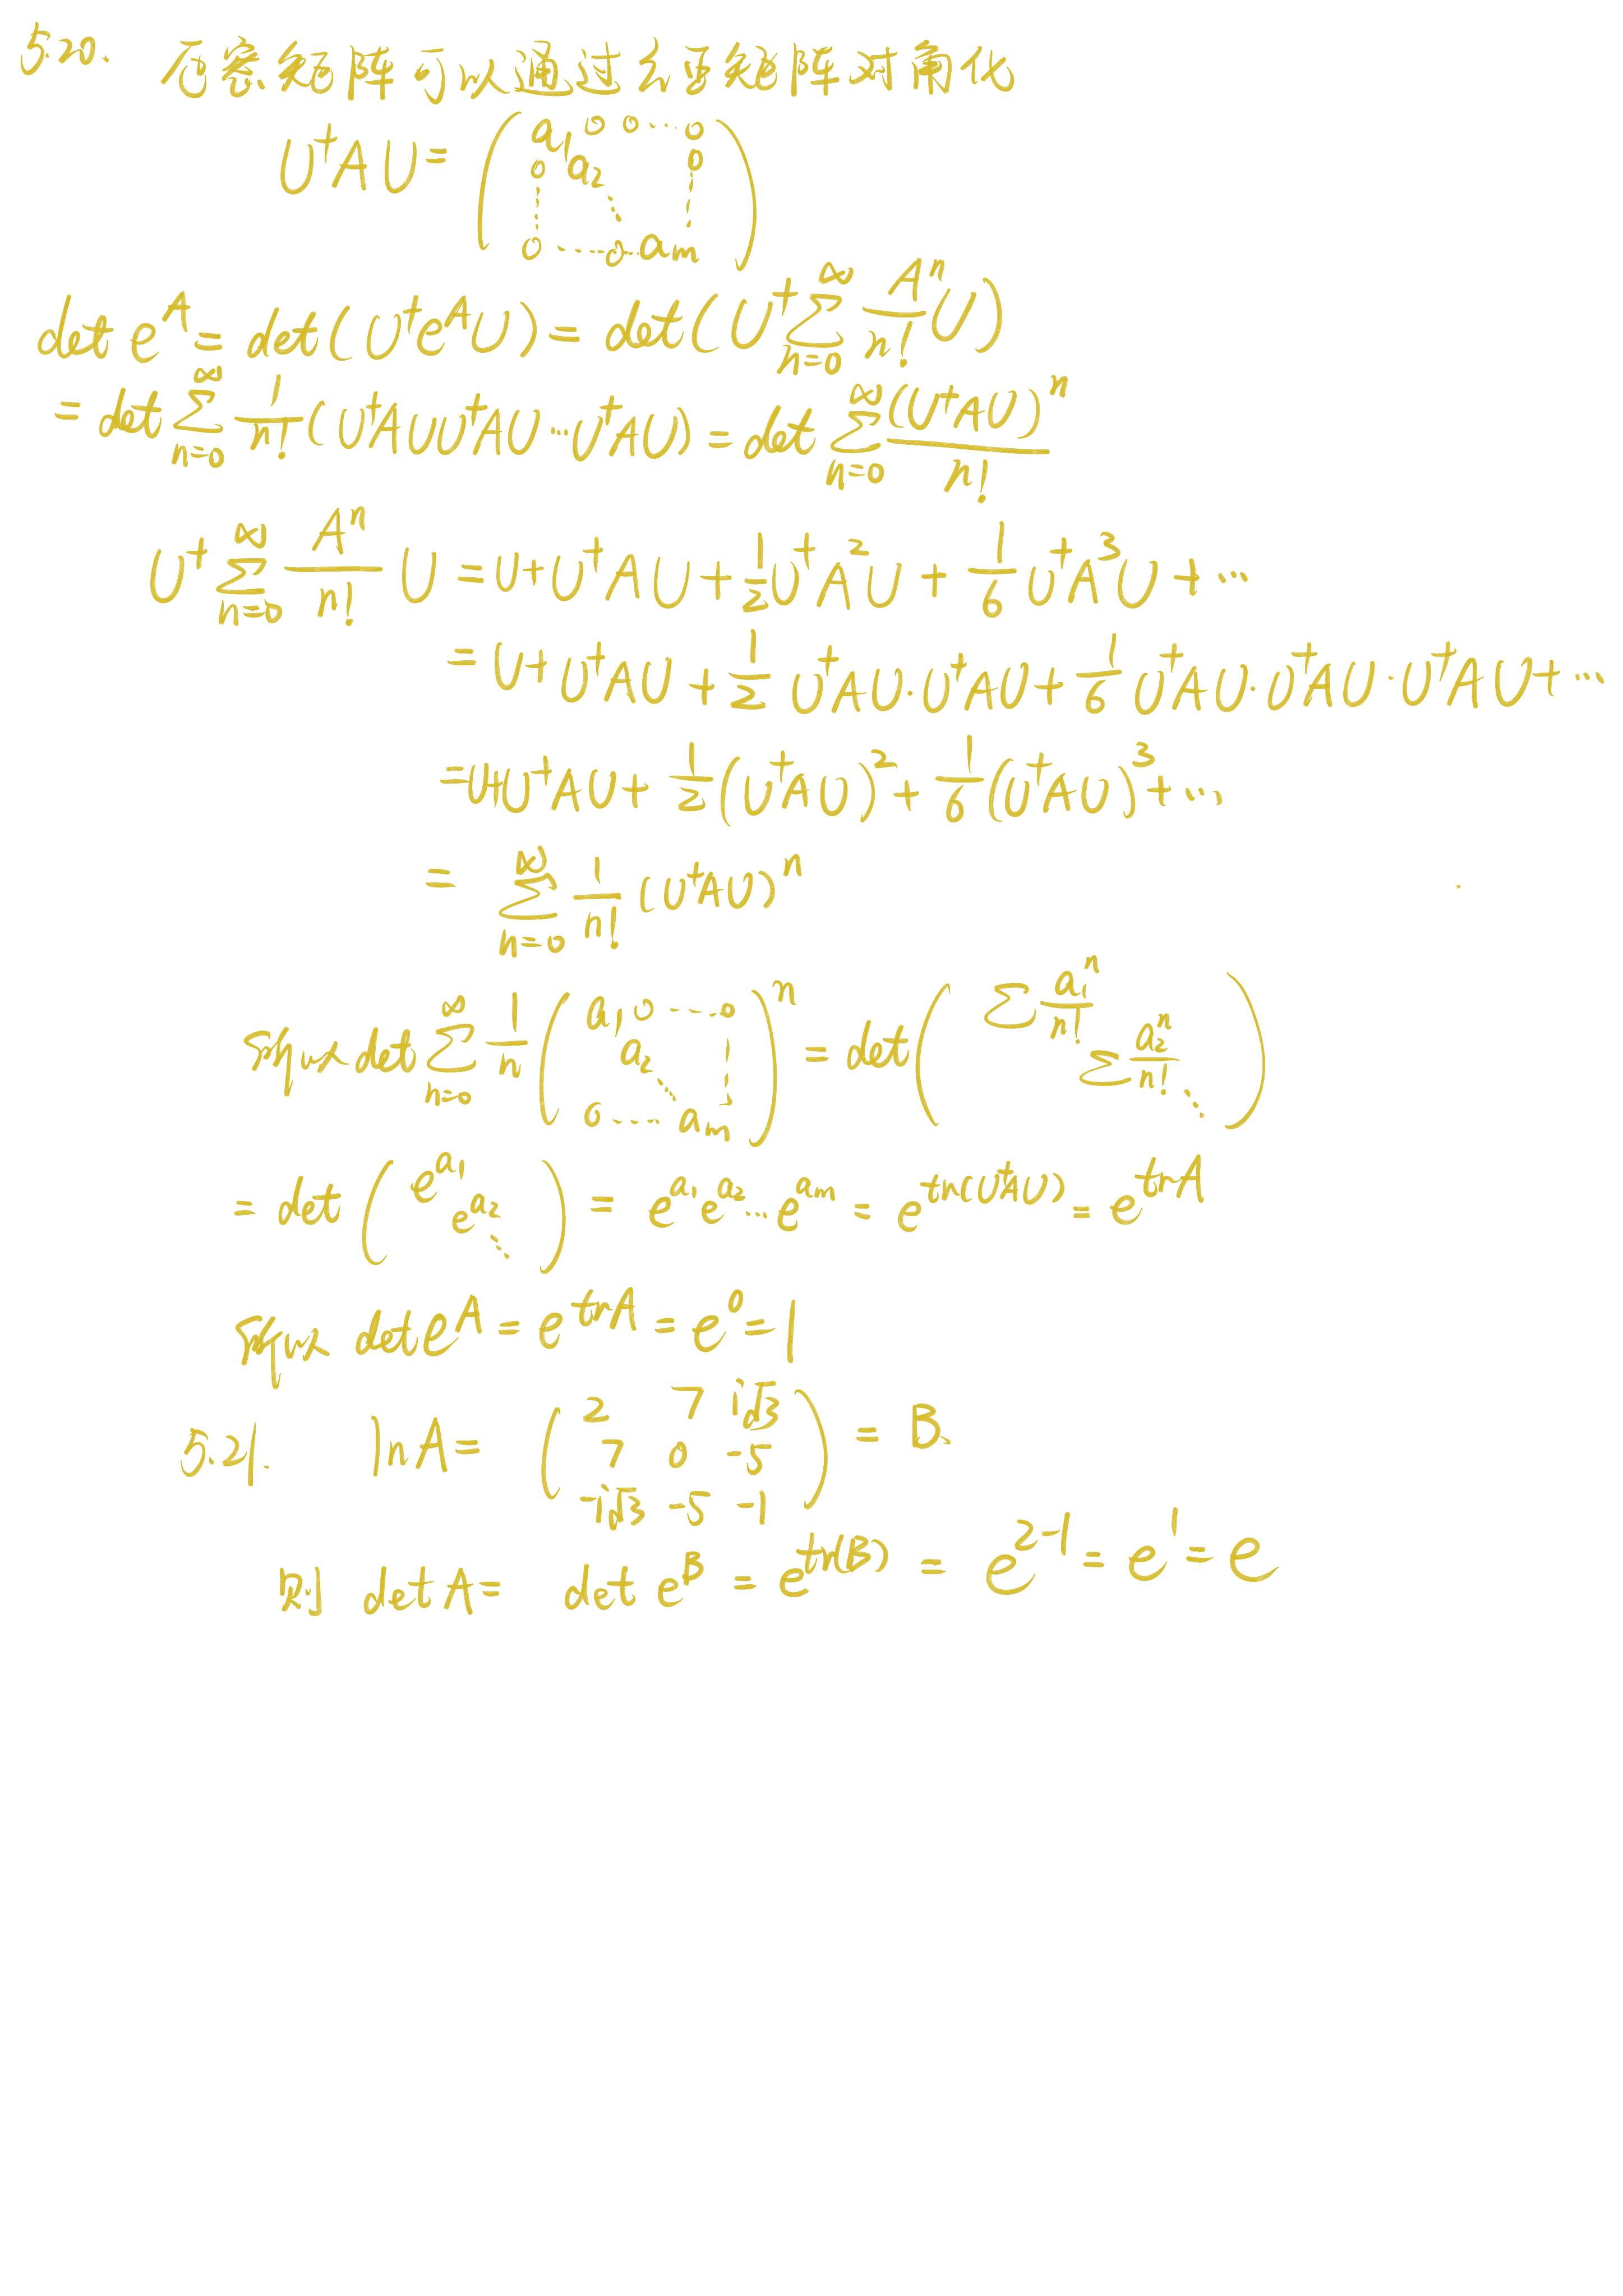 5.20. 厄密矩阵可以通过幺正矩阵对角化
U†AU = ( a₁ 0 0 ⋯ 0
0 a₂ 0
⋮ ⋱ ⋮
0 ⋯ 0 ⋯ aₘ )
det e^A = det(U†e^A U) = det(U† ∑_{n=0}^∞ A^n/n! U)
= det ∑_{n=0}^∞ 1/n! (U†AUU†AU⋯U†AU) = det ∑_{n=0}^∞ (U†AU)^n/n!
U† ∑_{n=0}^∞ A^n/n! U = U + U†AU + 1/2 U†A²U + 1/6 U†A³U + ⋯
= U + U†AU + 1/2 U†AU·U†AU + 1/6 U†AU·U†AU·U†AU + ⋯
= U + U†AU + 1/2 (U†AU)² + 1/6 (U†AU)³ + ⋯
= ∑_{n=0}^∞ 1/n! (U†AU)^n
所以 det ∑_{n=0}^∞ 1/n ( a₁ 0 ⋯ 0
a₂ ⋮
⋱
0 ⋯ aₘ )^n = det ( ∑ a₁^n/n!
∑ a₂^n/n! ⋱ )
= det ( e^{a₁}
e^{a₂} ⋱ ) = e^{a₁} e^{a₂} ⋯ e^{aₘ} = e^{tr(U†AU)} = e^{trA}
所以 det e^A = e^{trA} = e^0 = 1
5.21. lnA = ( 2 7 i√3
7 0 -5
-i√3 -5 -1 ) = B.
则 detA = det e^B = e^{tr(B)} = e^{2-1} = e^1 = e